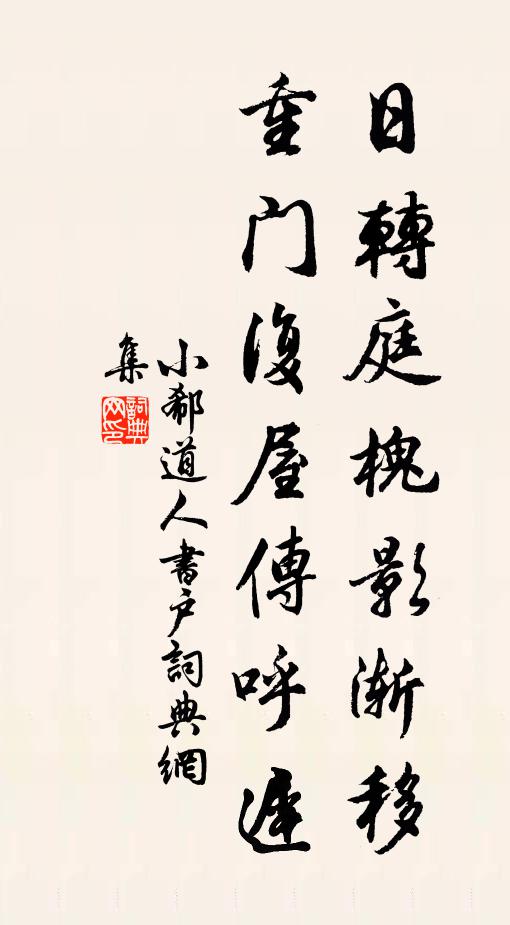 日轉庭槐影漸移
重门復屋傳呼遲
小郗道人書户詞典網
集
詞典
网印